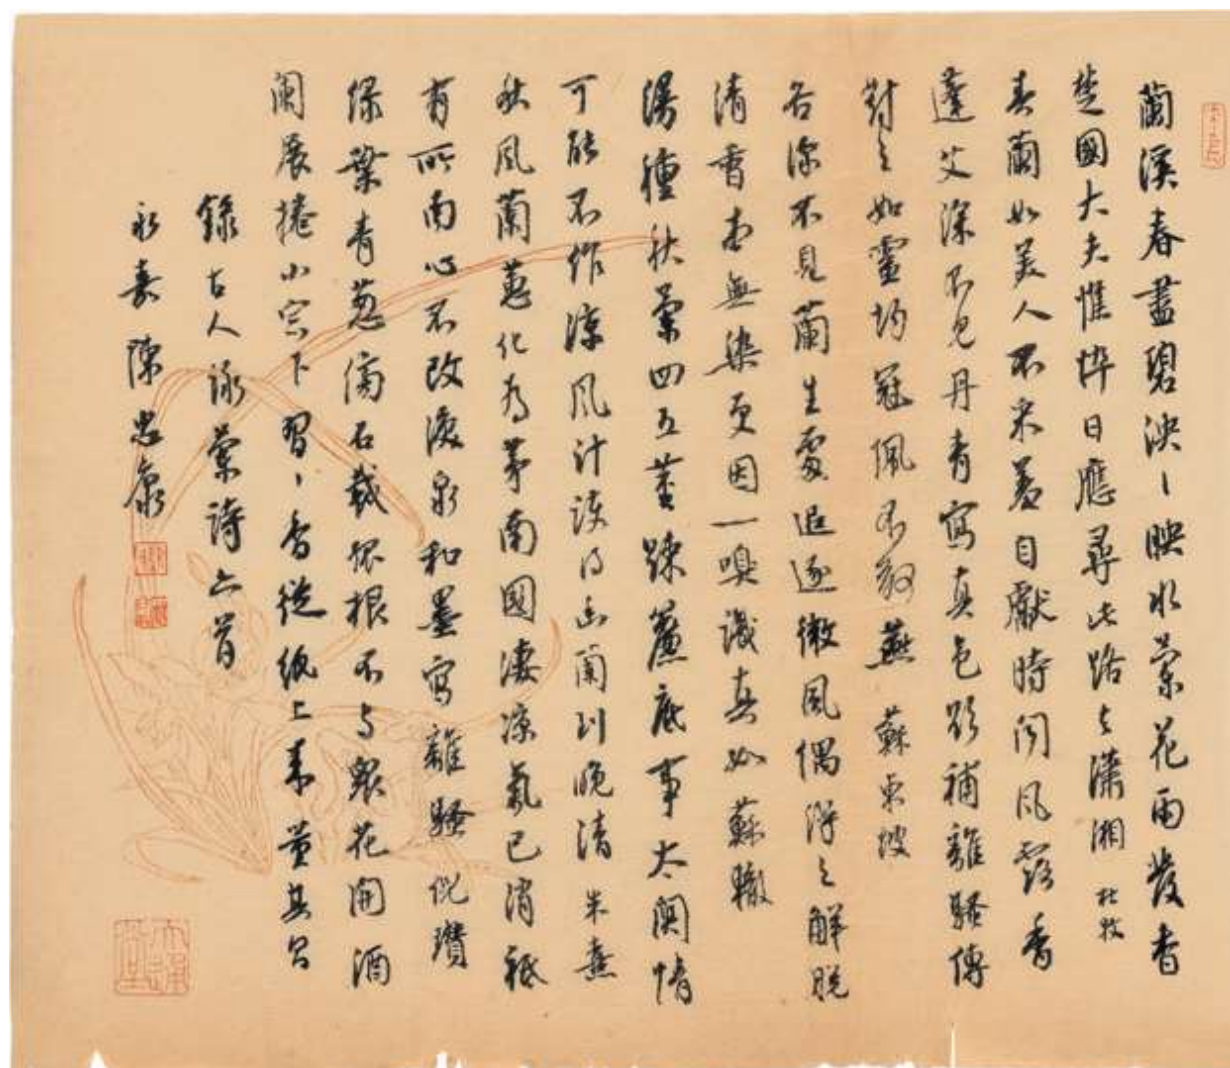 蘭溪春盡碧泱〻映水蘭花雨發香
楚國大夫憔悴日應尋此路去瀟湘 杜牧
春蘭如美人不采羞自獻時聞風露香
蓬艾深不見丹青寫真色欲補離騷傳
對之如靈均冠佩不敢燕 蘇東坡
谷深不見蘭生處追逐微風偶得之解脫
清香本無染更因一嗅識真如 蘇轍
漫種秋蘭四五莖疎簾底事太關情
可能不作涼風計護得幽蘭到晚清 朱熹
秋風蘭蕙化為茅南國淒涼氣已消祗
有所南心不改淚泉和墨寫離騷 倪瓚
綠葉青葱傍石栽孤根不與衆花開酒
闌展捲小窗下習〻香從紙上來 董其昌
錄古人詠蘭詩六首
永嘉陳忠康